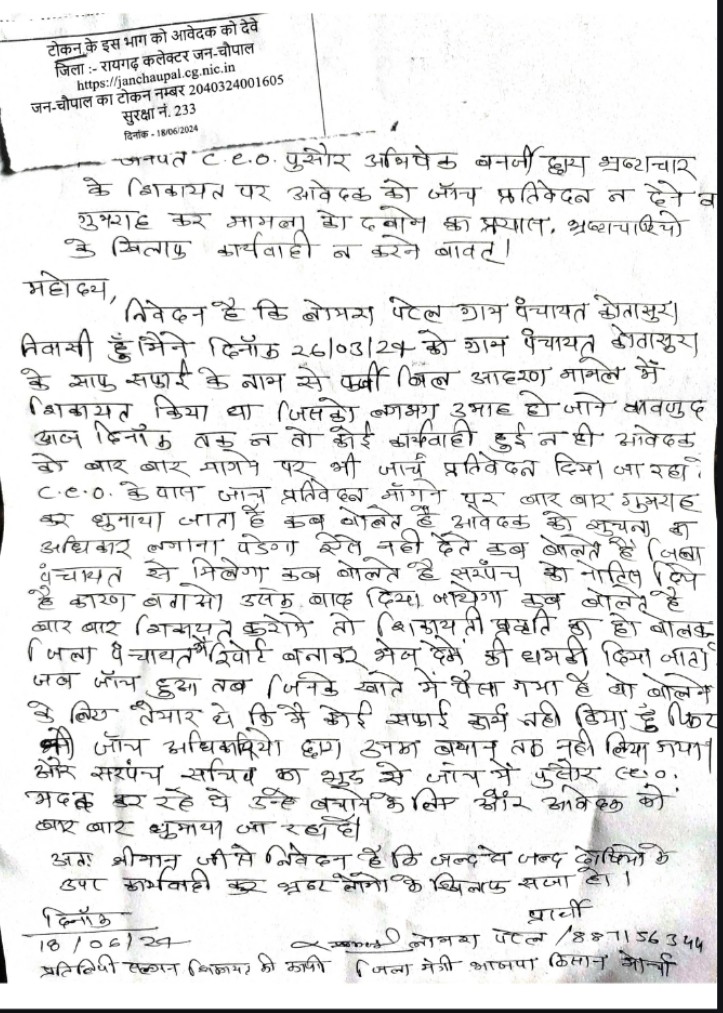 टोकन के इस भाग को आवेदक को देवे
जिला :- रायगढ़ कलेक्टर जन-चौपाल
https://janchaupal.cg.nic.in
जन-चौपाल का टोकन नम्बर 2040324001605
सुरक्षा नं. 233
दिनांक - 18/06/2024
जनपत C.E.O. पुसौर अभिषेक बनर्जी द्वारा भ्रष्टाचार
के शिकायत पर आवेदक को जाँच प्रतिवेदन न देने व
गुमराह कर मामला को दबाने का प्रयास, भ्रष्टाचारियो
के खिलाफ कार्यवाही न करने बाबत्।
महोदय,
निवेदन है कि पटेल ग्राम पंचायत कोतासुरा
निवासी हूँ मैंने दिनाँक 26/03/24 को ग्राम पंचायत कोतासुरा
के साफ सफाई के नाम से फर्जी बिल आहरण मामले में
शिकायत किया था जिसको लगभग 3 माह हो जाने बावजुद
आज दिनाँक तक न तो कोई कार्यवाही हुई न ही आवेदक
को बार बार मागने पर भी जाँच प्रतिवेदन दिया जा रहा।
C.E.O. के पास जाँच प्रतिवेदन माँगने पर बार बार गुमराह
कर घुमाया जाता है कब बोलते है आवेदक को सुचना का
अधिकार लगाना पडेगा ऐसे नही देते कब बोलते है जिला
पंचायत से मिलेगा कब बोलते है सरपंच को नोटिस दिये
है कारण बताओ उसके बाद दिया जायेगा कब बोलते है
बार बार शिकायत करोगे तो शिकायती प्रवृति का हो बोलकर
जिला पंचायत में रिपोर्ट बनाकर भेज देगें की धमकी दिया जाता
जब जाँच हुआ तब जिनके खाते में पैसा गया है वो बोलने
के लिए तैयार थे कि मै कोई सफाई कार्य नही किया हूँ फिर
भी जाँच अधिकारियो द्वारा उनका बयान तक नही लिया गया।
और सरपंच सचिव का शुरु से जांच में पुसौर C.E.O.
मदद कर रहे थे उन्हे बचाने के लिए और आवेदक को
बार बार घुमाया जा रहा है।
अतः श्रीमान जी से निवेदन है कि जल्द से जल्द दोषियो के
उपर कार्यवाही कर भ्रष्ट लोगो के खिलाफ सजा हो।
दिनाँक
प्रार्थी
18/06/24
पटेल /887156344
प्रतिलिपी संलग्न शिकायत की कापी जिला मंत्री भाजपा किसान मोर्चा